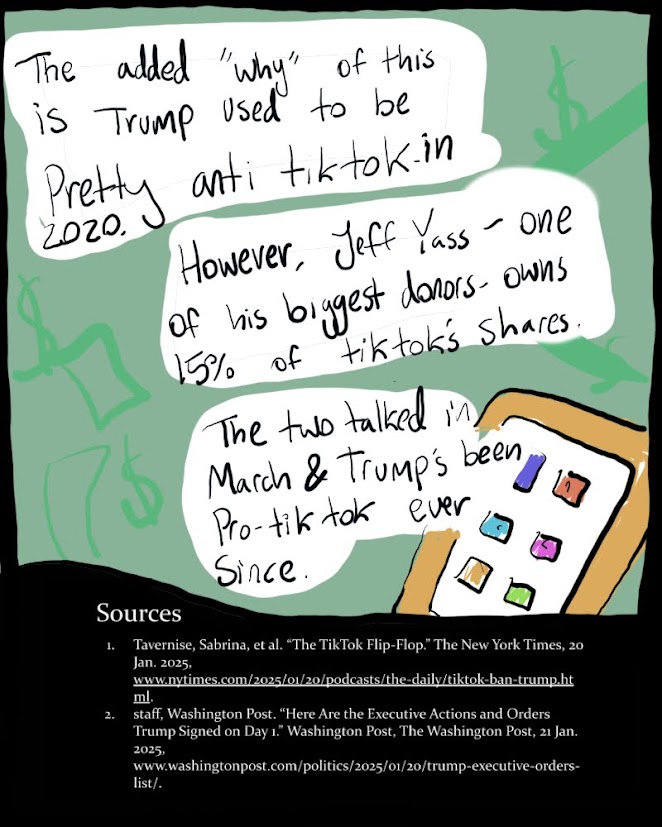 The added "why" of this
is Trump used to be
Pretty anti tiktok in
2020.
However, Jeff Yass - one
of his biggest donors- owns
15% of tiktok's shares.
The two talked in
March & Trump's been
Pro-tik tok ever
Since.
Sources
1. Tavernise, Sabrina, et al. “The TikTok Flip-Flop.” The New York Times, 20
Jan. 2025,
www.nytimes.com/2025/01/20/podcasts/the-daily/tiktok-ban-trump.ht
ml.
2. staff, Washington Post. “Here Are the Executive Actions and Orders
Trump Signed on Day 1.” Washington Post, The Washington Post, 21 Jan.
2025,
www.washingtonpost.com/politics/2025/01/20/trump-executive-orders-
list/.